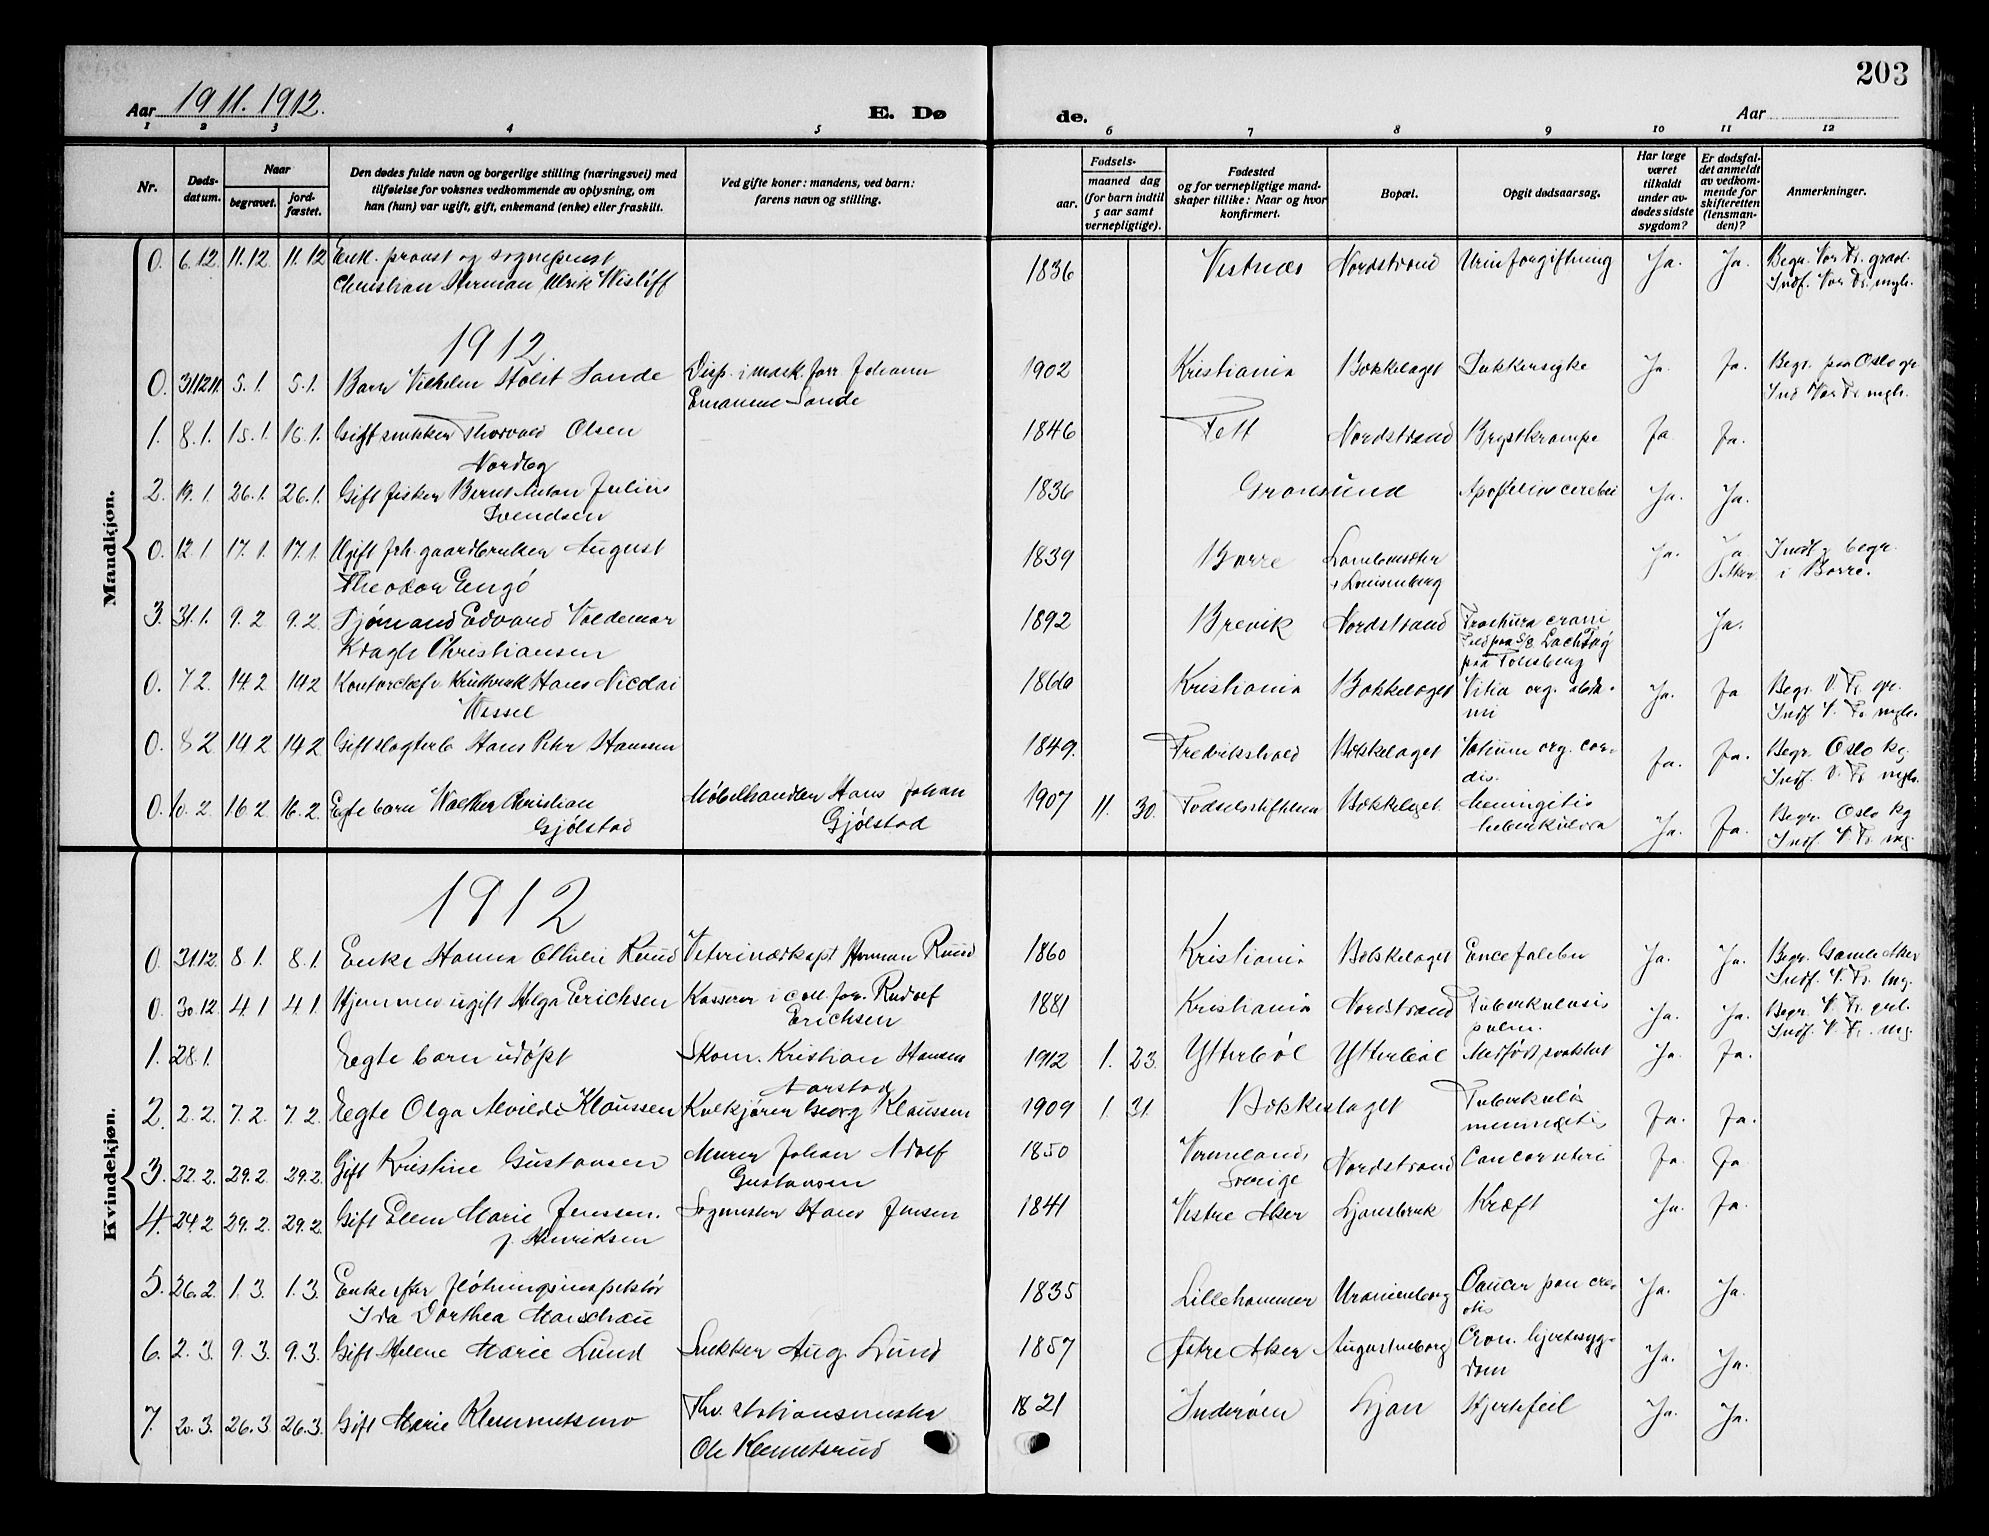 203
Aar 1911. 1912.
E. Dø
de.
Aar
1 2 3 4 5 6 7 8 9 10 11 12
Nr.
Døds-
datum.
Naar
begravet.
jord-
fæstet.
Den dødes fulde navn og borgerlige stilling (næringsvei) med
tilføielse for voksnes vedkommende av oplysning, om
han (hun) var ugift, gift, enkemand (enke) eller fraskilt.
Ved gifte koner: mandens, ved barn:
farens navn og stilling.
Fødsels-
aar.
maaned dag
(for barn indtil
5 aar samt
vernepligtige).
Fødested
og for vernepligtige mand-
skaper tillike: Naar og hvor
konfirmert.
Bopæl.
Opgit dødsaarsag.
Har læge
været
tilkaldt
under av-
dødes sidste
sygdom?
Er dødsfal-
det anmeldt
av vedkom-
mende for
skifteretten
(lensman-
den)?
Anmerkninger.
Mandkjøn.
0. 6.12. 11.12 11.12 Enk. provst og sogneprest 1836 Vestnes Nordstrand Urinforgiftning Ja. Ja. Begr. Vor Fr. grav.
Christian Herman Ulrik Wisløff Indf. Vor Fr. mgh.
1912
0. 31.12.11. 5.1. 5.1. Barn Vilhelm Holst Sande Disp. i mask. forr. Johann 1902 Kristiania Bækkelaget Sukkersyke Ja. Ja. Begr. paa Oslo gr.
Emanuel Sande Ind Vor Fr. mgh.
1. 8.1. 15.1. 15.1. Gift snekker Thorvald Olsen 1846 Fett Nordstrand Brystkrampe Ja Ja.
Nordby
2. 19.1. 26.1. 26.1. Gift fisker Bernt Anton Julius 1836 Gronsund Apoplexia cerebri Ja. Ja.
Svendsen
0. 12.1 17.1. 17.1. Ugift fhv. gaardbruker August 1839 Borre Ja. Ja Indf. og begr.
Theodor Eengø i Borre.
3. 31.1. 9.2 9.2. Sjømand Edvard Valdemar 1892 Brevik Nordstrand Fractura cranii Ja.
Kragh Christiansen
paa Tønsberg
0. 7.2. 14.2 14.2 Kontorchef Hans Nicolai 1860 Kristiania Bækkelaget Vitia org. abdo-
Wessel mi Ja. Ja Begr. V. Fr. gr.
Indf. V. Fr. mgh.
0. 8.2 14.2 14.2 Gift slagterb Hans Petr Hansen 1849. Fredrikshald Bækkelaget Vitium org. cor-
dis. Ja. Ja. Begr. Oslo kg.
Indf. V. Fr. mgh.
0. 10.2. 16.2 16.2. Egte barn Walther Christian Møbelhandler Hans Johan 1907 11. 30. Fødselsstiftelsen Bækkelaget. Meningitis Ja. Ja. Begr. Oslo kg
Gjølstad Gjølstad tuberkulosa Indf. V. Fr. mg.
Kvindekjøn.
1912
0. 31.12. 8.1. 8.1. Enke Hanna Othilie Ruud Veterinærkapt Herman Ruud 1860 Kristiania Bækkelaget Ja. Ja. Begr. Gamle Aker
Indf. V. Fr. mg.
0. 30.12. 4.1 4.1. Hjemmev. ugift Helga Erichsen Kasserer i coll. for. Rudolf 1881 Kristiania Nordstrand Tuberkulosis Ja. Ja. Begr. V. Fr. grl.
Erichsen pulm. Indf. V. Fr. mg.
1. 28.1. Egte barn udøpt Skom. Kristian Hansen 1912 1. 23. Ytterbøl Ytterbøl Medfødt svakhet Ja. Ja.
Aarstad
2. 2.2. 7.2. 7.2. Egte Olga Alvilde Klaussen Kulkjører Georg Klaussen 1909 1. 31. Bækkelaget Tuberkuløs Ja. Ja.
meningitis
3. 22.2. 29.2. 29.2. Gift Kristine Gustavsen Murer Johan Adolf 1850 Vermeland, Nordstrand Cancer uteri Ja. Ja
Gustavsen Sverige
4. 24.2 29.2. 29.2. Gift Ellen Marie Jenssen. Sagmester Hans Jensen 1841 Vestre Aker Ljansbruk Kræft Ja. Ja.
f. Henriksen
5. 26.2. 1.3. 1.3. Enke efter fløtningsinspektør 1835 Lillehammer Uranienborg Cancer pancre- Ja. Ja.
Ida Dorthea Marschau atis
6. 2.3. 9.3. 9.3. Gift Helene Marie Lund Snekker Aug. Lund 1857 Østre Aker Augustenborg Cron. hjertesyg- Ja. Ja.
dom
7. 20.3. 26.3 26.3. Gift Marie Klemmetsrud Fhv. stationsmester 1821 Inderøen Ljan Hjertefeil Ja. Ja.
Ole Klemetsrud